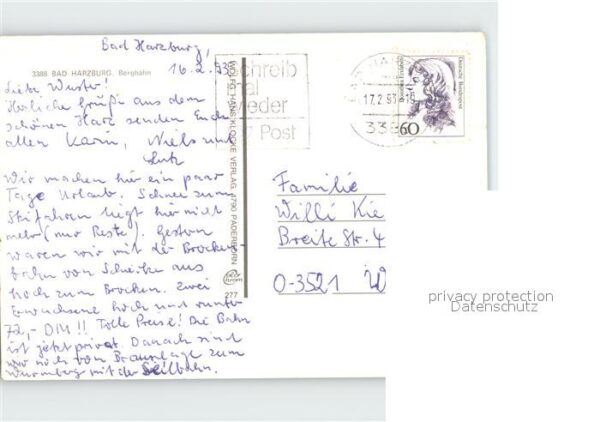 Bad Harzburg,
16.2.93
3388 BAD HARZBURG, Bergbahn
Liebe
Herzliche Grüße aus dem
schönen Harz senden Euch
allen Karin, Niels und
Lutz
Wir machen hier ein paar
Tage Urlaub. Schnee zum
Skifahren liegt hier nicht
mehr (nur Reste). Gestern
waren wir mit der Brocken-
bahn von Schierke aus
hoch zum Brocken. Zwei
Erwachsene hoch und runter
72,- DM!! Tolle Preise! Die Bahn
ist jetzt privat. Danach sind
wir noch von Braunlage zum
Wurmberg mit der Seilbahn.
WOLFGANG HANS KLOCKE VERLAG 4790 PADERBORN
277
Schreib
mal
wieder
Post
17.2.93
338
Deutsche Bundespost
60
Familie
Willi Kie
Breite Str. 4
O-3521 W
privacy protection
Datenschutz